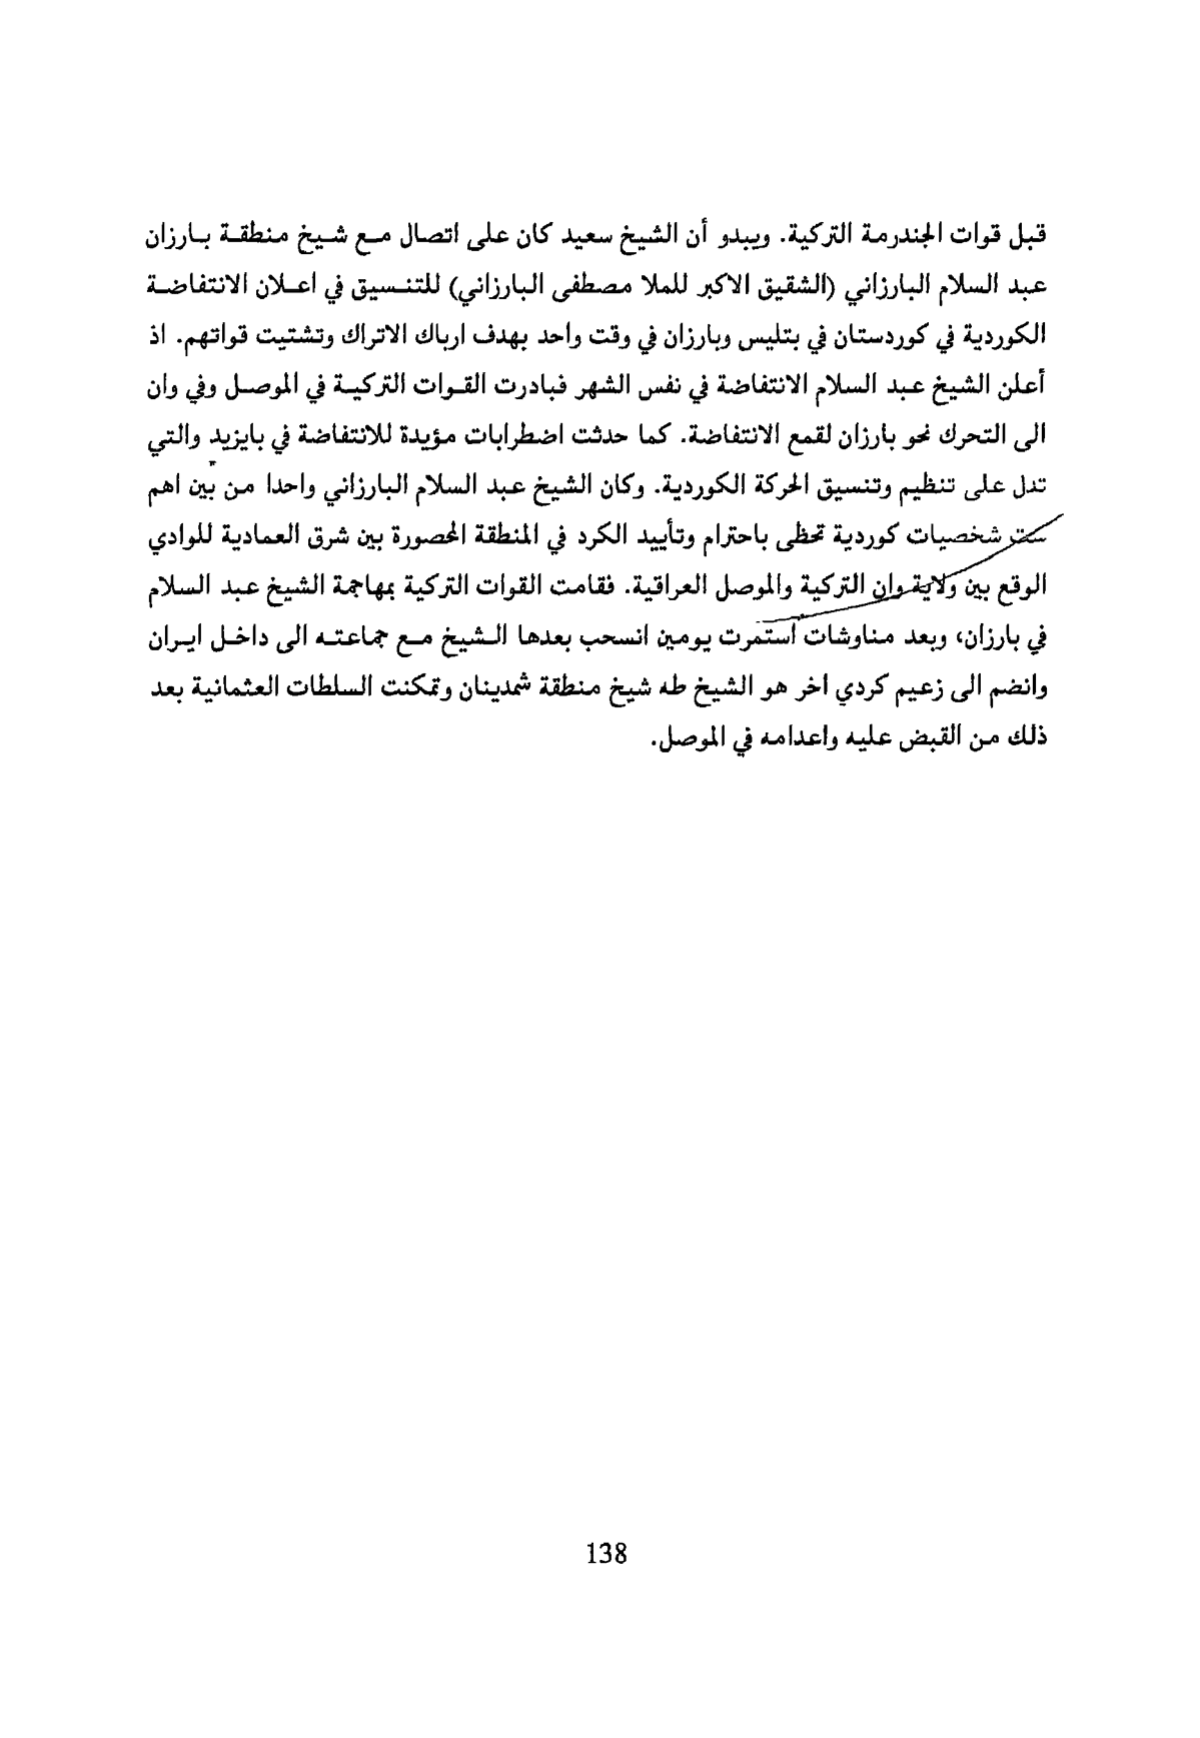 قبل قوات الجندرمة التركية. ويبدو أن الشيخ سعيد كان على اتصال مع شيخ منطقة بارزان
عبد السلام البارزاني (الشقيق الاكبر للملا مصطفى البارزاني) للتنسيق في اعلان الانتفاضة
الكوردية في كوردستان في بتليس وبارزان في وقت واحد بهدف ارباك الاتراك وتشتيت قواتهم. اذ
أعلن الشيخ عبد السلام الانتفاضة في نفس الشهر فبادرت القوات التركية في الموصل وفي وان
الى التحرك نحو بارزان لقمع الانتفاضة. كما حدثت اضطرابات مؤيدة للانتفاضة في بايزيد والتي
تدل على تنظيم وتنسيق الحركة الكوردية. وكان الشيخ عبد السلام البارزاني واحدا من بين اهم
ست شخصيات كوردية تحظى باحترام وتأييد الكرد في المنطقة المحصورة بين شرق العمادية للوادي
الوقع بين ولاية وان التركية والموصل العراقية. فقامت القوات التركية بمهاجمة الشيخ عبد السلام
في بارزان، وبعد مناوشات استمرت يومين انسحب بعدها الشيخ مع جماعته الى داخل ايران
وانضم الى زعيم كردي اخر هو الشيخ طه شيخ منطقة شمدينان وتمكنت السلطات العثمانية بعد
ذلك من القبض عليه واعدامه في الموصل.
138